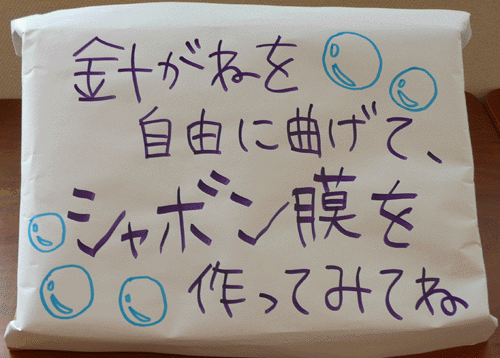 針がねを
自由に曲げて、
シャボン膜を
作ってみてね